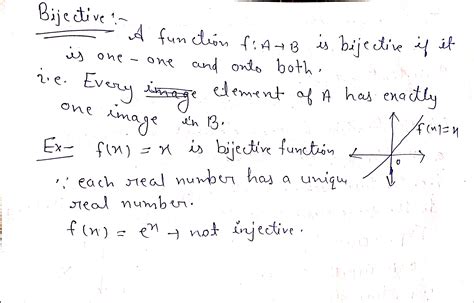 Bijective :-
A function f: A→B is bijective if it
is one-one and onto both.
i.e. Every image element of A has exactly
one image in B.
f(x)=x
Ex- f(x) = x is bijective function
0
∵ each real number has a unique
real number.
f(x) = eˣ → not injective.